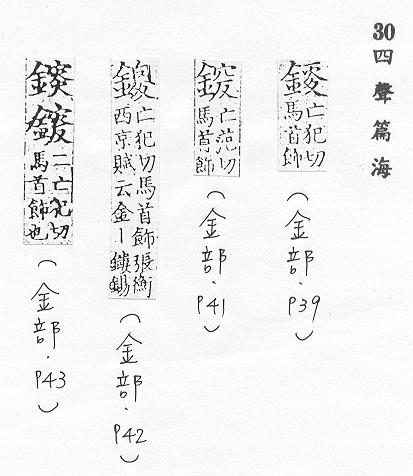 30四聲篇海
亡犯切
馬首飾
(金部.P39)
亡范切
馬首飾
(金部.P41)
亡犯切馬首飾張衡
西京賦云金丨鏤鍚
(金部.P42)
二亡犯切
馬首飾也
(金部.P43)